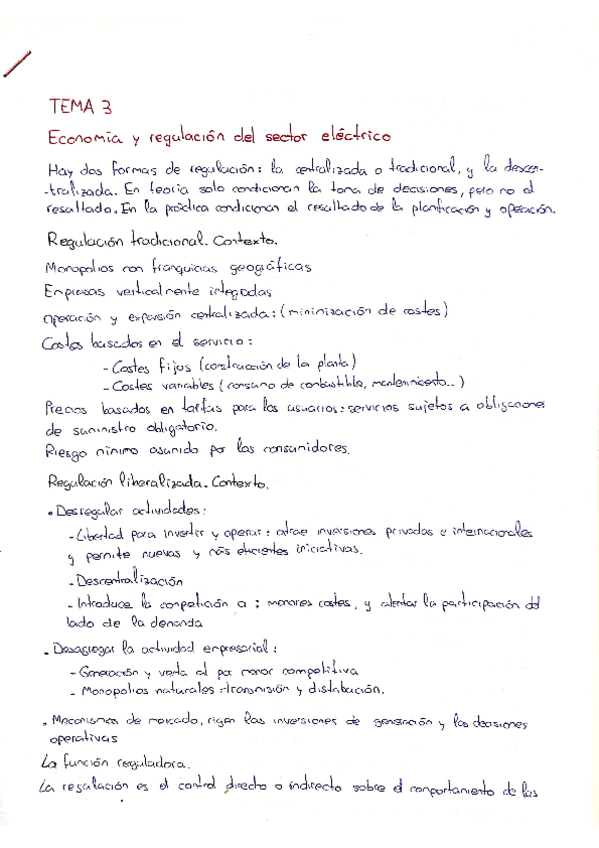 TEMA 3
Economía y regulación del sector eléctrico
Hay dos formas de regulación: la centralizada o tradicional, y la descen-
-tralizada. En teoría solo condicionan la toma de decisiones, pero no el
resultado. En la práctica condicionan el resultado de la planificación y operación.
Regulación tradicional. Contexto.
Monopolios con franquicias geográficas
Empresas verticalmente integadas
Operación y expansión centralizada: (minimización de costes)
Costes basados en el servicio:
- Costes fijos (construcción de la planta)
- Costes variables (consumo de combustible, mantenimiento...)
Precios basados en tarifas para los usuarios: servicios sujetos a obligaciones
de suministro obligatorio.
Riesgo mínimo asumido por los consumidores.
Regulación liberalizada. Contexto.
• Desregular actividades:
- Libertad para invertir y operar: atrae inversiones privadas e internacionales
y permite nuevas y más eficientes iniciativas.
- Descentralización
- Introduce la competición a: menores costes, y alentar la participación del
lado de la demanda
• Desagregar la actividad empresarial:
- Generación y venta al por menor competitiva
- Monopolios naturales: transmisión y distribución.
• Mecanismos de mercado, rigen las inversiones de generación y las decisiones
operativas
La función reguladora.
La regulación es el control directo o indirecto sobre el comportamiento de las